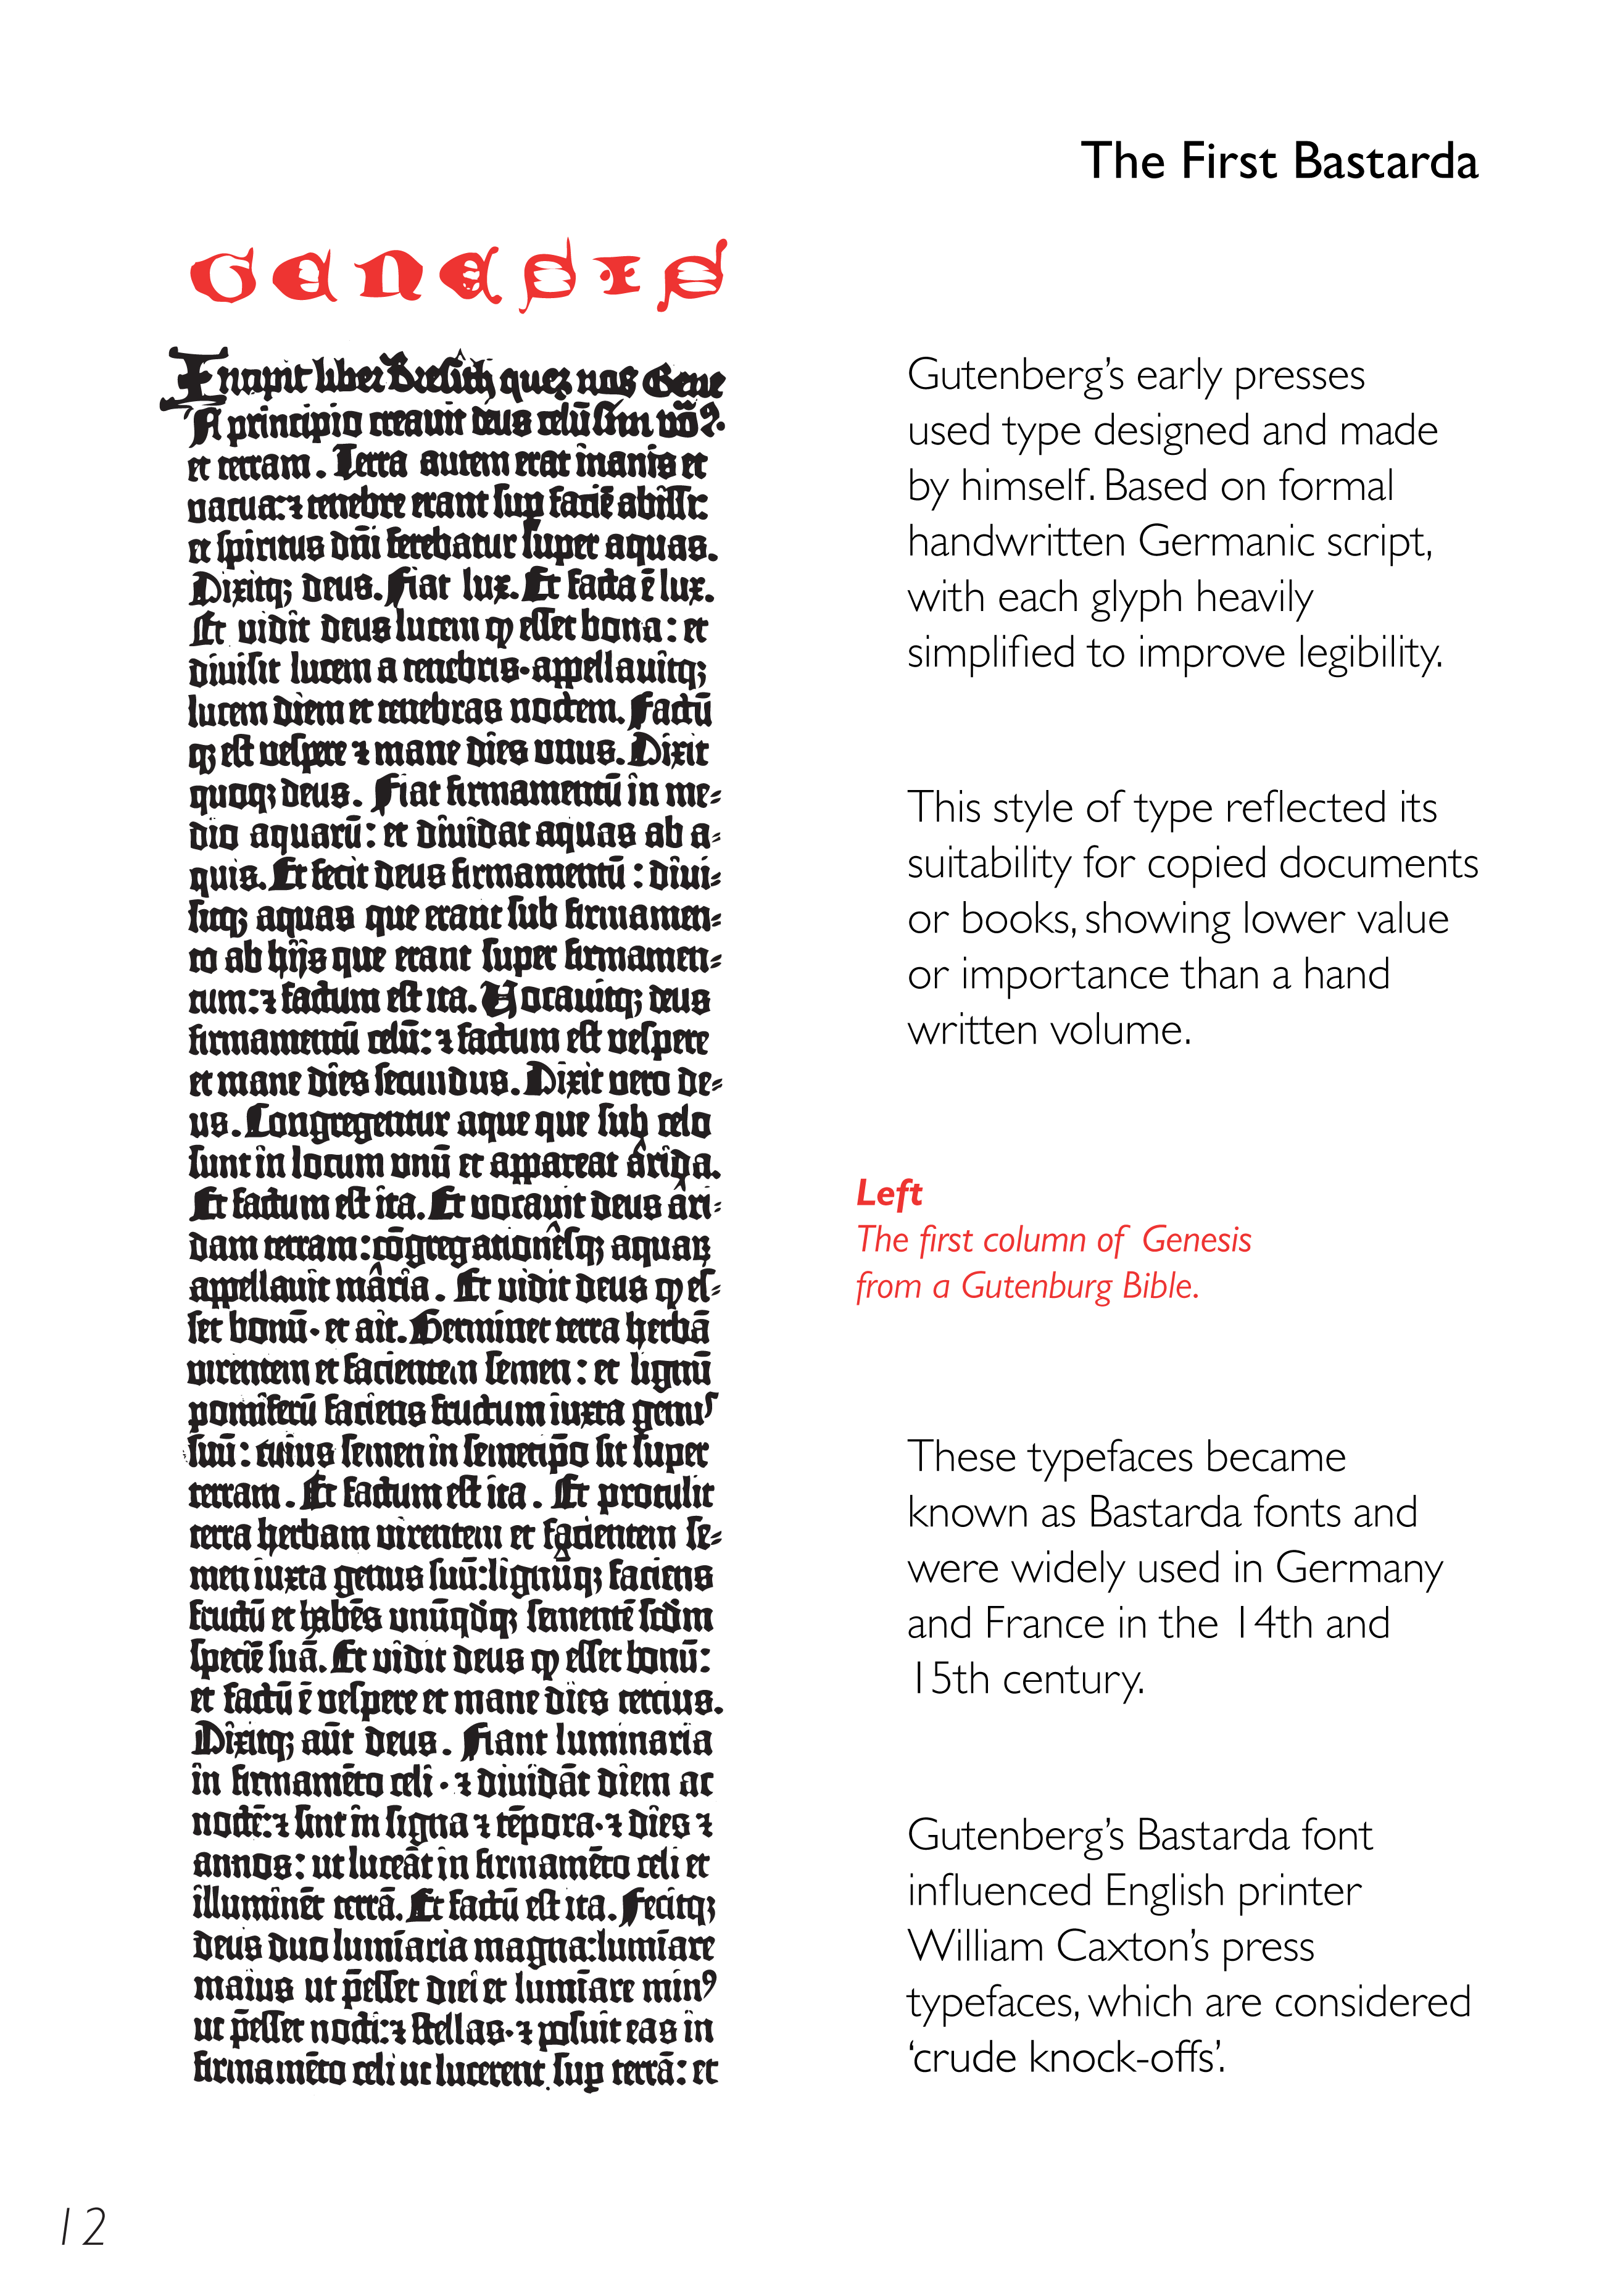 The First Bastarda
Genesis
Incipit liber Bresith quez nos Gene
A principio creauit deus celū sim vō?.
et terram. Terra autem erat inanis et
vacua: ⁊ tenebre erant sup faciē abissi:
et spiritus dn̄i ferebatur super aquas.
Dixitq; deus. Fiat lux. Et facta ē lux.
Et vidit deus lucem ꝙ esset bona: et
diuisit lucem a tenebris·appellauitq;
lucem diem et tenebras noctem. Factū
q; est vespere ⁊ mane dies unus. Dixit
quoq; deus. Fiat firmamentū in me-
dio aquarū: et diuidat aquas ab a-
quis. Et fecit deus firmamentū: diui-
sitq; aquas que erant sub firmamen-
to ab hijs que erant super firmamen-
tum: ⁊ factum est ita. Vocauitq; deus
firmamentū celū: ⁊ factum est vespere
et mane dies secundus. Dixit vero de-
us. Congregentur aque que sub celo
sunt in locum vnū et appareat arida.
Et factum est ita. Et vocauit deus ari-
dam terram: cōgregationesq; aquaꝝ
appellauit maria. Et vidit deus ꝙ es-
set bonū· et ait. Germinet terra herbā
virentem et facientem semen: et lignū
pomiferū faciens fructum iuxta genus
suū: cuius semen in semetip̄o sit super
terram. Et factum est ita. Et protulit
terra herbam virentem et facientem se-
men iuxta genus suū: lignūq; faciens
fructū et habēs unūqdq; sementē scdm
speciē suā. Et vidit deus ꝙ esset bonū:
et factū ē vespere et mane dies tercius.
Dixitq; aūt deus. Fiant luminaria
in firmamēto celi · ⁊ diuidāt diem ac
noctē: ⁊ sint in signa ⁊ tēpora· ⁊ dies ⁊
annos: ut luceāt in firmamēto celi et
illuminēt terrā. Et factū est ita. Fecitq;
deus duo lumīaria magna: lumīare
maius ut p̄esset diei et lumīare minꝰ
ut p̄esset nocti: ⁊ stellas· ⁊ posuit eas in
firmamēto celi ut lucerent sup terrā: et
Gutenberg’s early presses
used type designed and made
by himself. Based on formal
handwritten Germanic script,
with each glyph heavily
simplified to improve legibility.
This style of type reflected its
suitability for copied documents
or books, showing lower value
or importance than a hand
written volume.
Left
The first column of Genesis
from a Gutenburg Bible.
These typefaces became
known as Bastarda fonts and
were widely used in Germany
and France in the 14th and
15th century.
Gutenberg’s Bastarda font
influenced English printer
William Caxton’s press
typefaces, which are considered
‘crude knock-offs’.
12